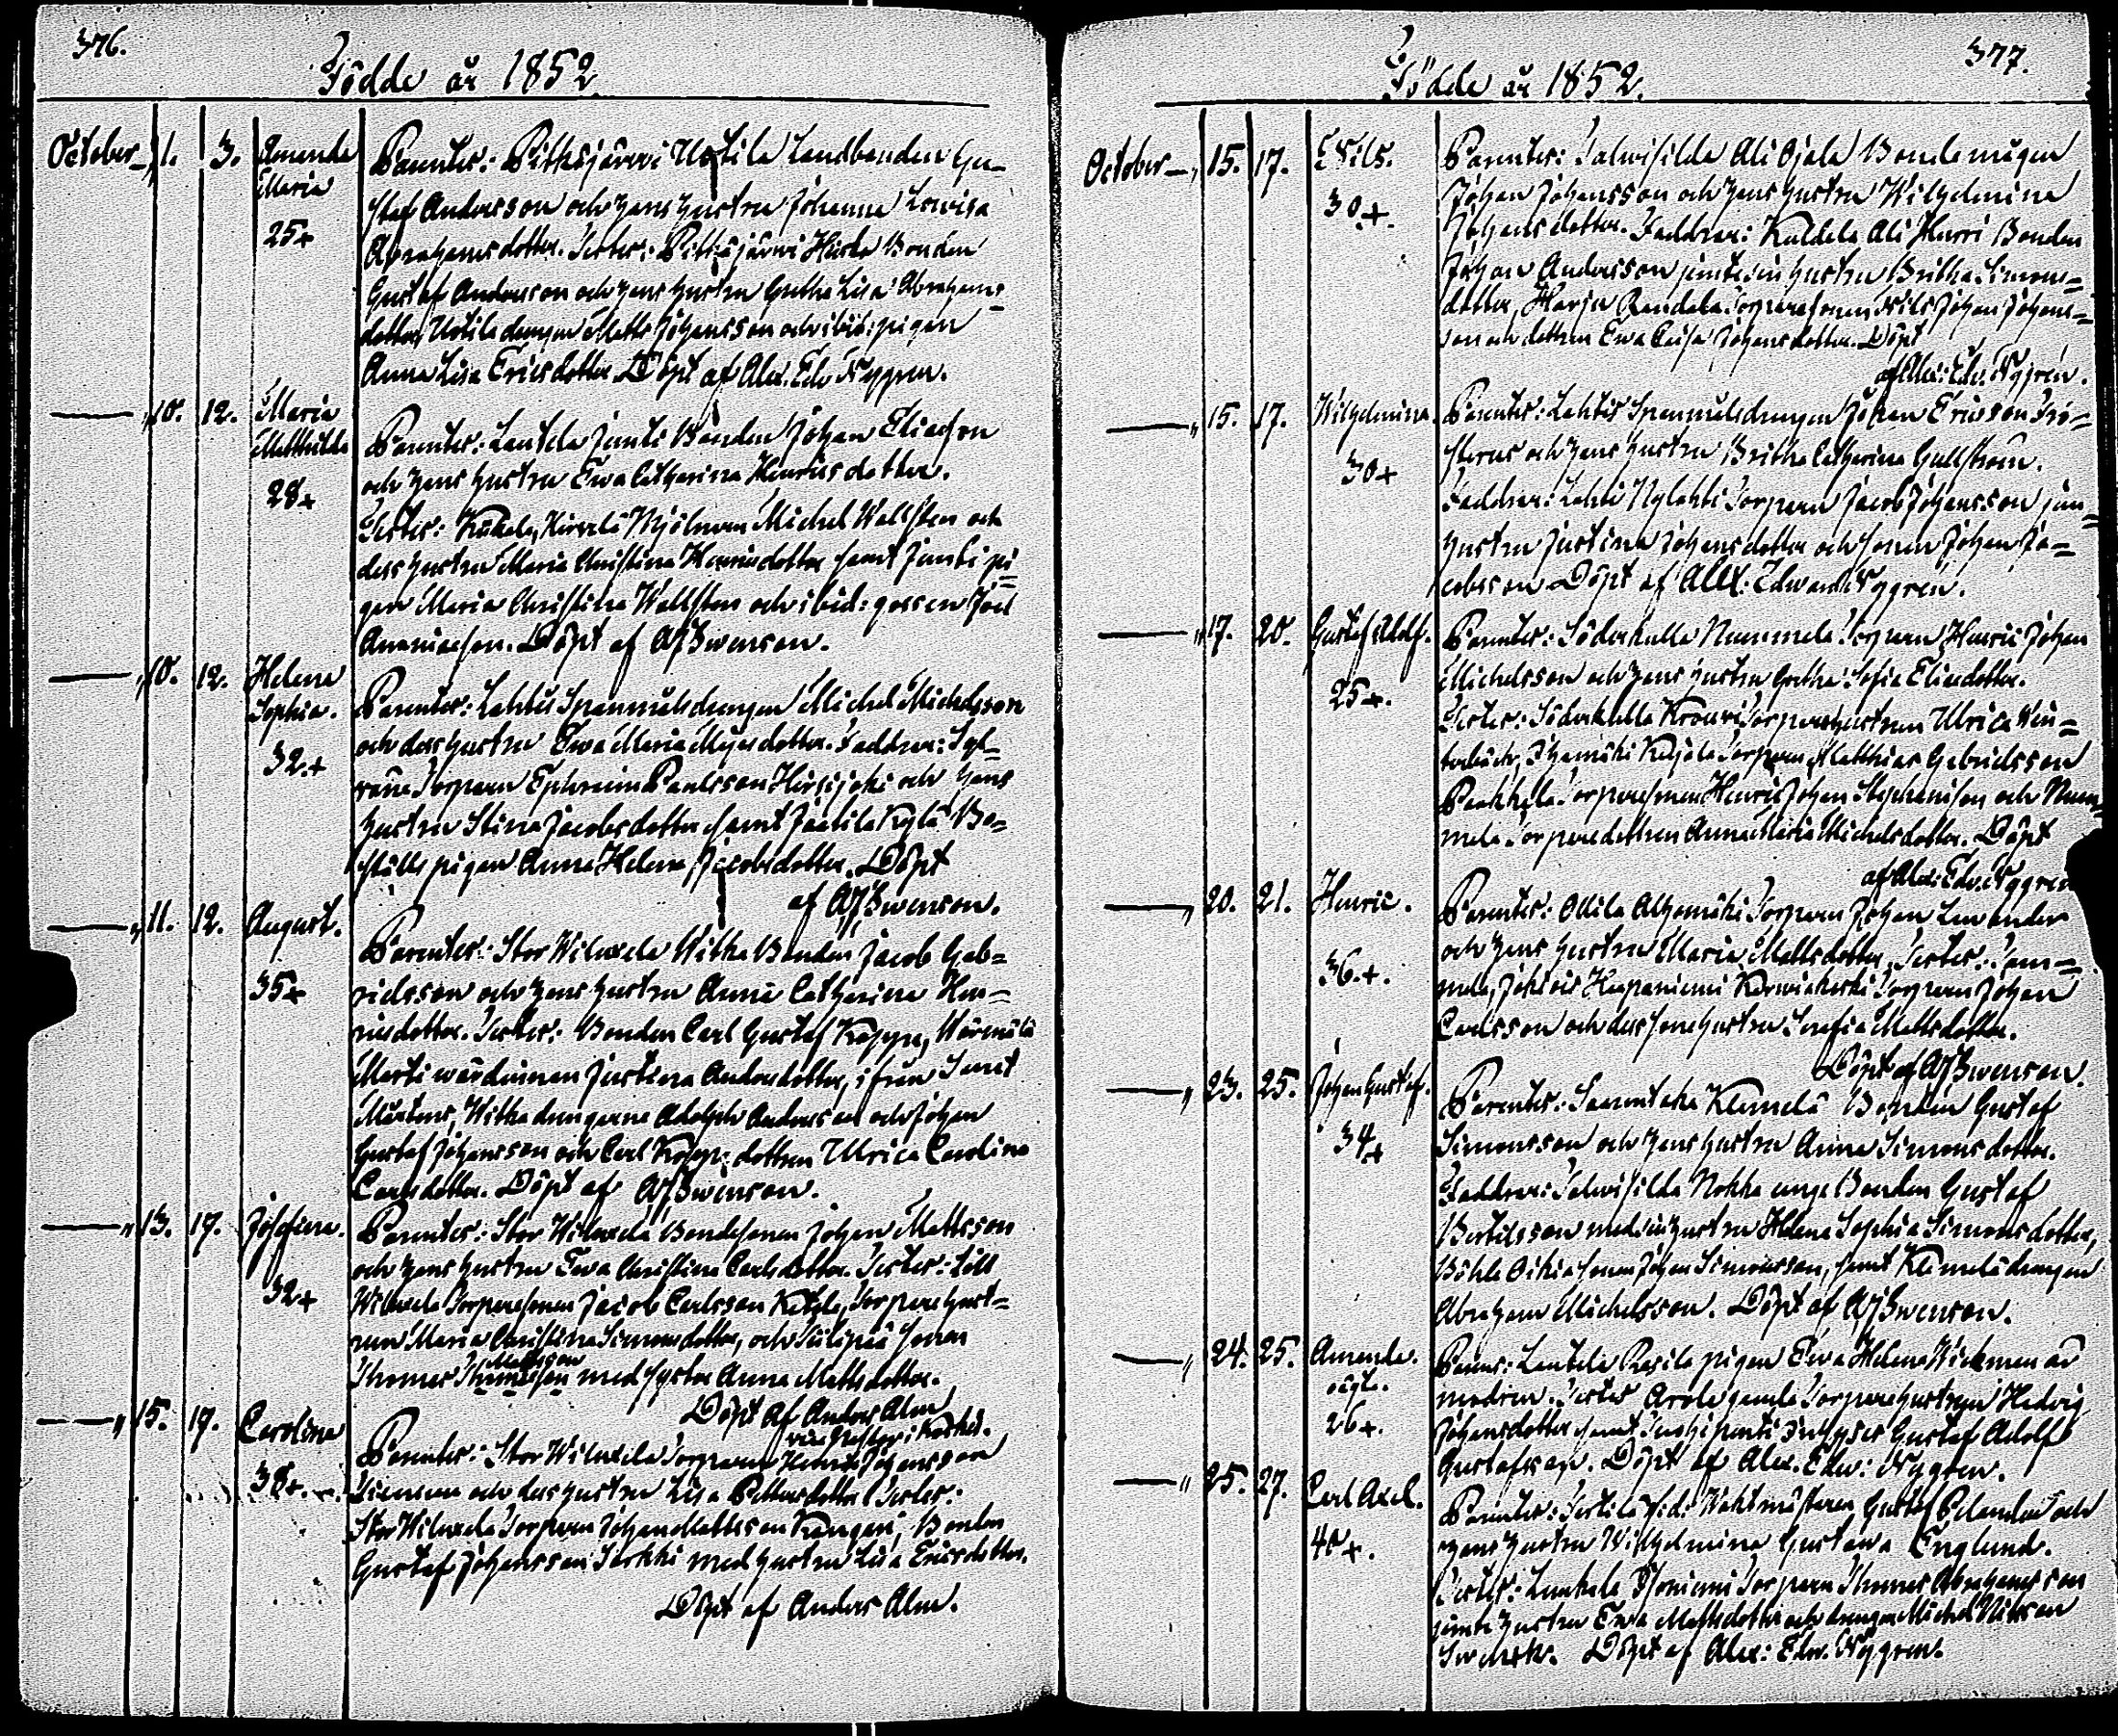 376.
Födde år 1852.
October 1. 3. Amanda Maria 25+
Parenter: Pitksjärvi Uotila Landbonden Gu-
staf Andersson och hans hustru Johanna Lovisa
Abrahamsdotter. Testes: Pitksjärvi Hirka Bonden
Gustaf Andersson och hans hustru Gretha Lisa Abrahams-
dotter, Uotila drengen Matts Johansson och ibid: pigan
Anna Lisa Ericsdotter. Döpt af Alex. Edv Nygren.
10. 12. Maria Mathilda 28+
Parenter: Lautela Junti Bonden Johan Eliasson
och hans hustru Eva Catharina Henricsdotter.
Testes: Mjölnaren Michel Wallsten och
dess hustru Maria Christina Henricsdotter samt Junti pi-
gan Maria Christina Wallsten och ibid: gossen Joel
Ananiasson. Döpt af AJSwenson.
10. 12. Helena Sophia. 32+
Parenter: Lahtis Spannmålsdrengen Michel Michelsson
och dess hustru Eva Maria dotter. Faddrar:
Torparen Ephraim Paulsson Hirsijoki och hans
hustru Stina Jacobsdotter samt Jaatila Kylä Bo-
ställs pigan Anna Helena Jacobsdotter. Döpt
af AJSwenson.
11. 12. August. 35+
Parenter: Stor Wilnxela Witka Bonden Jacob Gab-
rielsson och hans hustru Anna Catharina Hen-
ricsdotter. Testes: Bonden Carl Gustaf Koppe,
Marti wärdinnan Justina Andersdotter, ifrån Sanct
Mårtens, Witka drengarne Adolph Andersson och Johan
Gustaf Johansson och Carl Kopp: dottren Ulrica Carolina
Carlsdotter. Döpt af AJSwenson.
13. 17. Josefina. 32+
Parenter: Stor Wilnxela Bondesonen Johan Mattsson
och hans hustru Eva Christina Carlsdotter. Testes: Lill
Wilnxela Torparesonen Jacob Carlsson Ketola, Torparehust-
run Maria Christina Simonsdotter, och sonen
Thomas Mattsson med syster Anna Mattsdotter.
Döpt af Anders Alm
vice Pastor i Koskis.
15. 17. Carolina 38+
Parenter: Stor Wilnxela Torparen Henric Johansson
och dess hustru Lisa Pettersdotter Testes:
Stor Wilnxela Torparen Johan Mattsson Kangari, Bonden
Gustaf Johansson Sarkki med hustru Lisa Ericsdotter.
Döpt af Anders Alm.
377.
Födde år 1852.
October 15. 17. Nils. 30+.
Parenter: Salwisilda Ali Ojala Bondemågen
Johan Johansson och hans hustru Wilhelmina
Johansdotter. Faddrar: Kuldela Ali Hurri Bonden
Johan Andersson jemte sin hustru Britha Simons-
dotter, Harju Randala Torparesonen Nils Johan Johans-
son och dottren Eva Caisa Johansdotter. Döpt
af Alex: Edv. Nygrén.
15. 17. Wilhelmina. 30+
Parenter: Lahtis Spannmålsdrengen Johan Ericsson
och hans hustru Britha Catharina Gullström.
Faddrar: Lahti Nylahti Torparen Jacob Johansson jem-
hustru Justina Johansdotter och sonen Johan Ja-
cobsson. Döpt af Alex: Edward Nygrén.
17. 20. Gustaf Adolf. 25+.
Parenter: Söderkulla Nummela Torparen Henric Johan
Michelsson och hans hustru Gretha Sofia Eliasdotter.
Testes: Söderkulla Krouvi Torparehustrun Ulrica Win-
terbäck, Ihamäki Ketjola Torparen Matthias Gabrielsson
Torparesonen Henric Johan Stephansson och Num-
mela Torparedottren Anna Maria Michelsdotter. Döpt
af Alex: Edv. Nygren
20. 21. Henric. 36.+.
Parenter: Ollila Alhomäki Torparen Johan Levander
och hans hustru Maria Mattsdotter. Testes: Tam-
mela, Jokiois Haapaniemi Korwiakoski Torparen Johan
Carlsson och dess sonehustru Serafia Mattsdotter.
Döpt af AJSwenson.
23. 25. Johan Gustaf. 34+
Parenter: Sauvontaka Klemelä Bonden Gustaf
Simonsson och hans hustru Anna Simonsdotter.
Faddrar: Salwisilda Nokka unge Bonden Gustaf
Bertilsson med sin hustru Helena Sophia Simonsdotter,
Böhle Oikia sonen Johan Simonsson, samt Klemelä drengen
Abraham Michelsson. Döpt af AJSwenson.
24. 25. Amanda. oägt. 26+.
Parens: Lautela Rasila pigan Eva Helena Wickman är
modren. Testes Arola gamla Torparehustrun Hedvig
Johansdotter samt Inhyses Gustaf Adolf
Gustafsson. Döpt af Alex. Edw: Nygren.
25. 27. Carl Axel. 40+.
Parenter: Wahtmästaren Gustaf Pelander och
hans hustru Wilhelmina Gustava Englund.
Testes: Lankela Torparen Thomas Abrahamsson
jemte hustru Eva Mattsdotter och drengen Michel Nilsson
Döpt af Alex: Edw. Nygren.